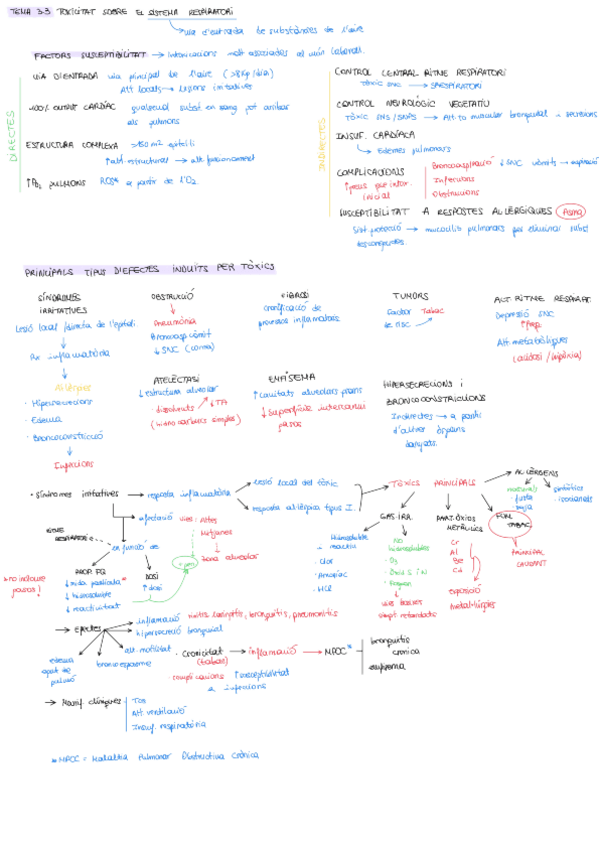 TEMA 3.3 TOXICITAT SOBRE EL SISTEMA RESPIRATORI
via d'entrada de substàncies de l'aire
FACTORS SUSCEPTIBILITAT → Intoxicacions + alt associades al món laboral.
DIRECTES
VIA D'ENTRADA via principal de l'aire
Alt locals → lesions irritatives
100% OUTPUT CARDÍAC qualsevol subst en sang pot arribar
als pulmons
ESTRUCTURA COMPLEXA >150 m2 epiteli
↑ alt estructurals → alt. funcionament
↑PO2 PULMONS ROS* a partir de l'O2
INDIRECTES
CONTROL CENTRAL RITME RESPIRATORI
Tòxic SNC →
CONTROL NEUROLÒGIC VEGETATIU
Tòxic SNS/SNPS → Alt. to muscular bronquial
INSUF. CARDÍACA
→ Edemes pulmonars
COMPLICACIONS
inicial
Broncoaspiració ↓SNC vòmits → aspiració
Infeccions
Obstruccions
SUSCEPTIBILITAT A RESPOSTES AL·LÈRGIQUES Asma
Sist. protecció → mucocilis pulmonars per eliminar subst
PRINCIPALS TIPUS D'EFECTES INDUÏTS PER TÒXICS
SÍNDROMES
IRRITATIVES
Lesió local /directa de l'epiteli
inflamatòria
Al·lèrgies
· Hipersecrecions
· Edema
· Broncoconstricció
Infeccions
OBSTRUCCIÓ
Pneumònia
Broncoaspiració
↓ SNC (coma)
FIBROSI
cronificació de
processos inflamatoris
TUMORS
Factor Tabac
de risc
ALT. RITME RESPIRAT.
Depressió SNC
Alt. metabòliques
(acidosi / hipòxia)
ATELÈCTASI
↓ estructura alveolar
· dissolvents ↓TA
(hidrocarburs simples)
EMFISEMA
↑ cavitats alveolars grans
↓ Superfície intercanvi
gasos
HIPERSECRECIONS I
BRONCOCONSTRICCIONS
Indirectes → a partir
d'altres òrgans
danyats.
· Síndromes irritatives → resposta inflamatòria
lesió local del tòxic
resposta al·lèrgica tipus I.
TÒXICS PRINCIPALS
AL·LÈRGENS
naturals
· fusta
· soja
sintètics
· isocianats
afectació vies: altes
mitjanes
zona alveolar
en funció de
PROP. FQ
↓ mida partícula*
↓ hidrosoluble
↓ reactivitat
DOSI
↑ dosi
RITME
RESPIRATORI
* no incloure
gasos!
GAS IRR.
Hidrosoluble
reactius
· Clor
· Amoníac
· HCl
No
hidrosolubles
· O3
· Òxids N
· Fosgen
vies baixes
simpt retardats
PART. ÒXIDS
METÀL·LICS
Cr
Al
Be
Cd
exposició
metal·lúrgies
FUM
TABAC
PRINCIPAL
CAUSANT
→ Efectes
inflamació rinitis, laringitis, bronquitis, pneumonitis
hipersecreció bronquial
alt. motilitat
broncoespasme
edema
agut de
pulmó
· Cronicitat → inflamació → MPOC*
(tabac)
complicacions ↑ susceptibilitat
a infeccions
bronquitis
crònica
emfisema
→ Manif. clíniques
Tos
Alt. ventilació
Insuf. respiratòria
* MPOC = Malaltia Pulmonar Obstructiva Crònica